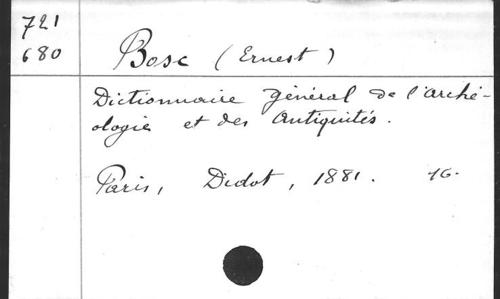 721
680
Bosc (Ernest)
Dictionnaire général de l'arché-
ologie et des Antiquités.
Paris, Didot, 1881. 16.